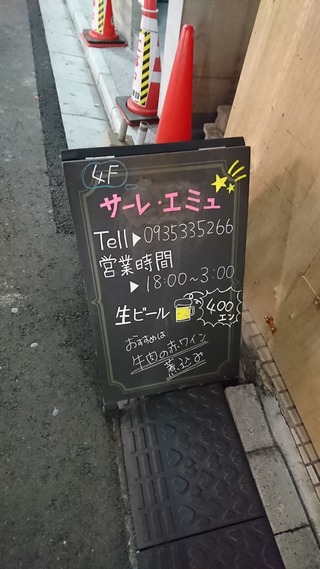 4F
サーレ・エミュ
Tell▶0935335266
営業時間
▶18:00~3:00
生ビール 400エン
おすすめは
牛肉の赤ワイン
煮込み